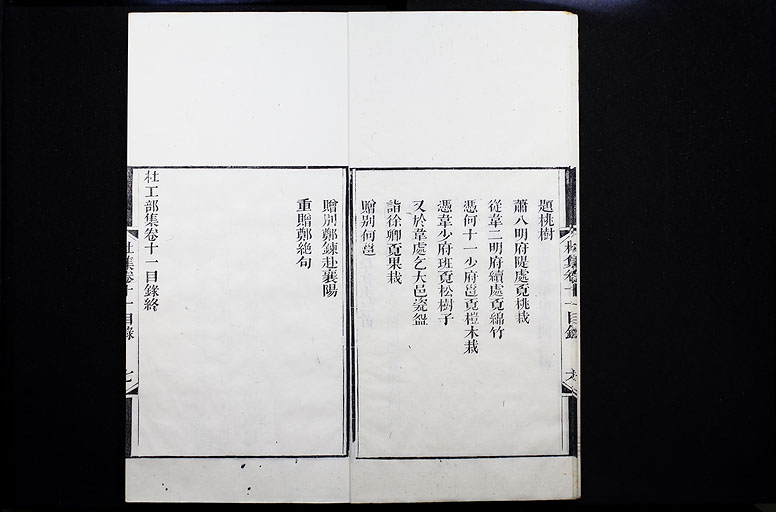 題桃樹
蕭八明府隄處覓桃栽
從韋二明府續處覓綿竹
憑何十一少府邕覓榿木栽
憑韋少府班覓松樹子
又於韋處乞大邑瓷盌
詣徐卿覓果栽
贈別何邕
贈別鄭鍊赴襄陽
重贈鄭絕句
杜工部集卷十一目錄終
杜集卷十一目錄 七